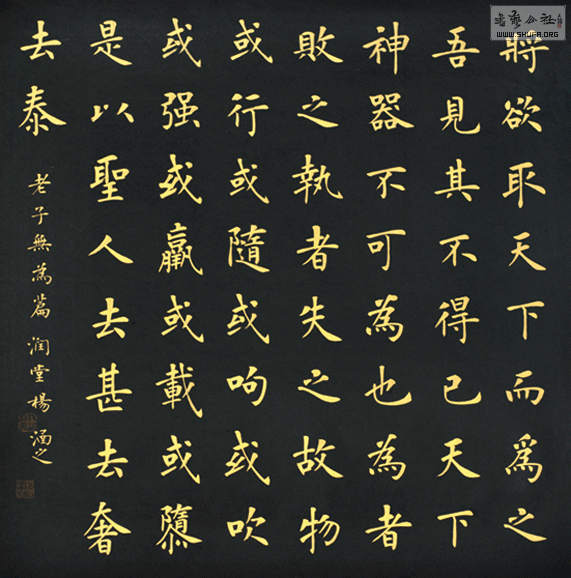 將欲取天下而為之
吾見其不得已天下
神器不可為也為者
敗之執者失之故物
或行或隨或呴或吹
或强或羸或載或隳
是以聖人去甚去奢
去泰
老子無為篇 润堂楊涵之
書藝公社
WWW.SHUFA.ORG